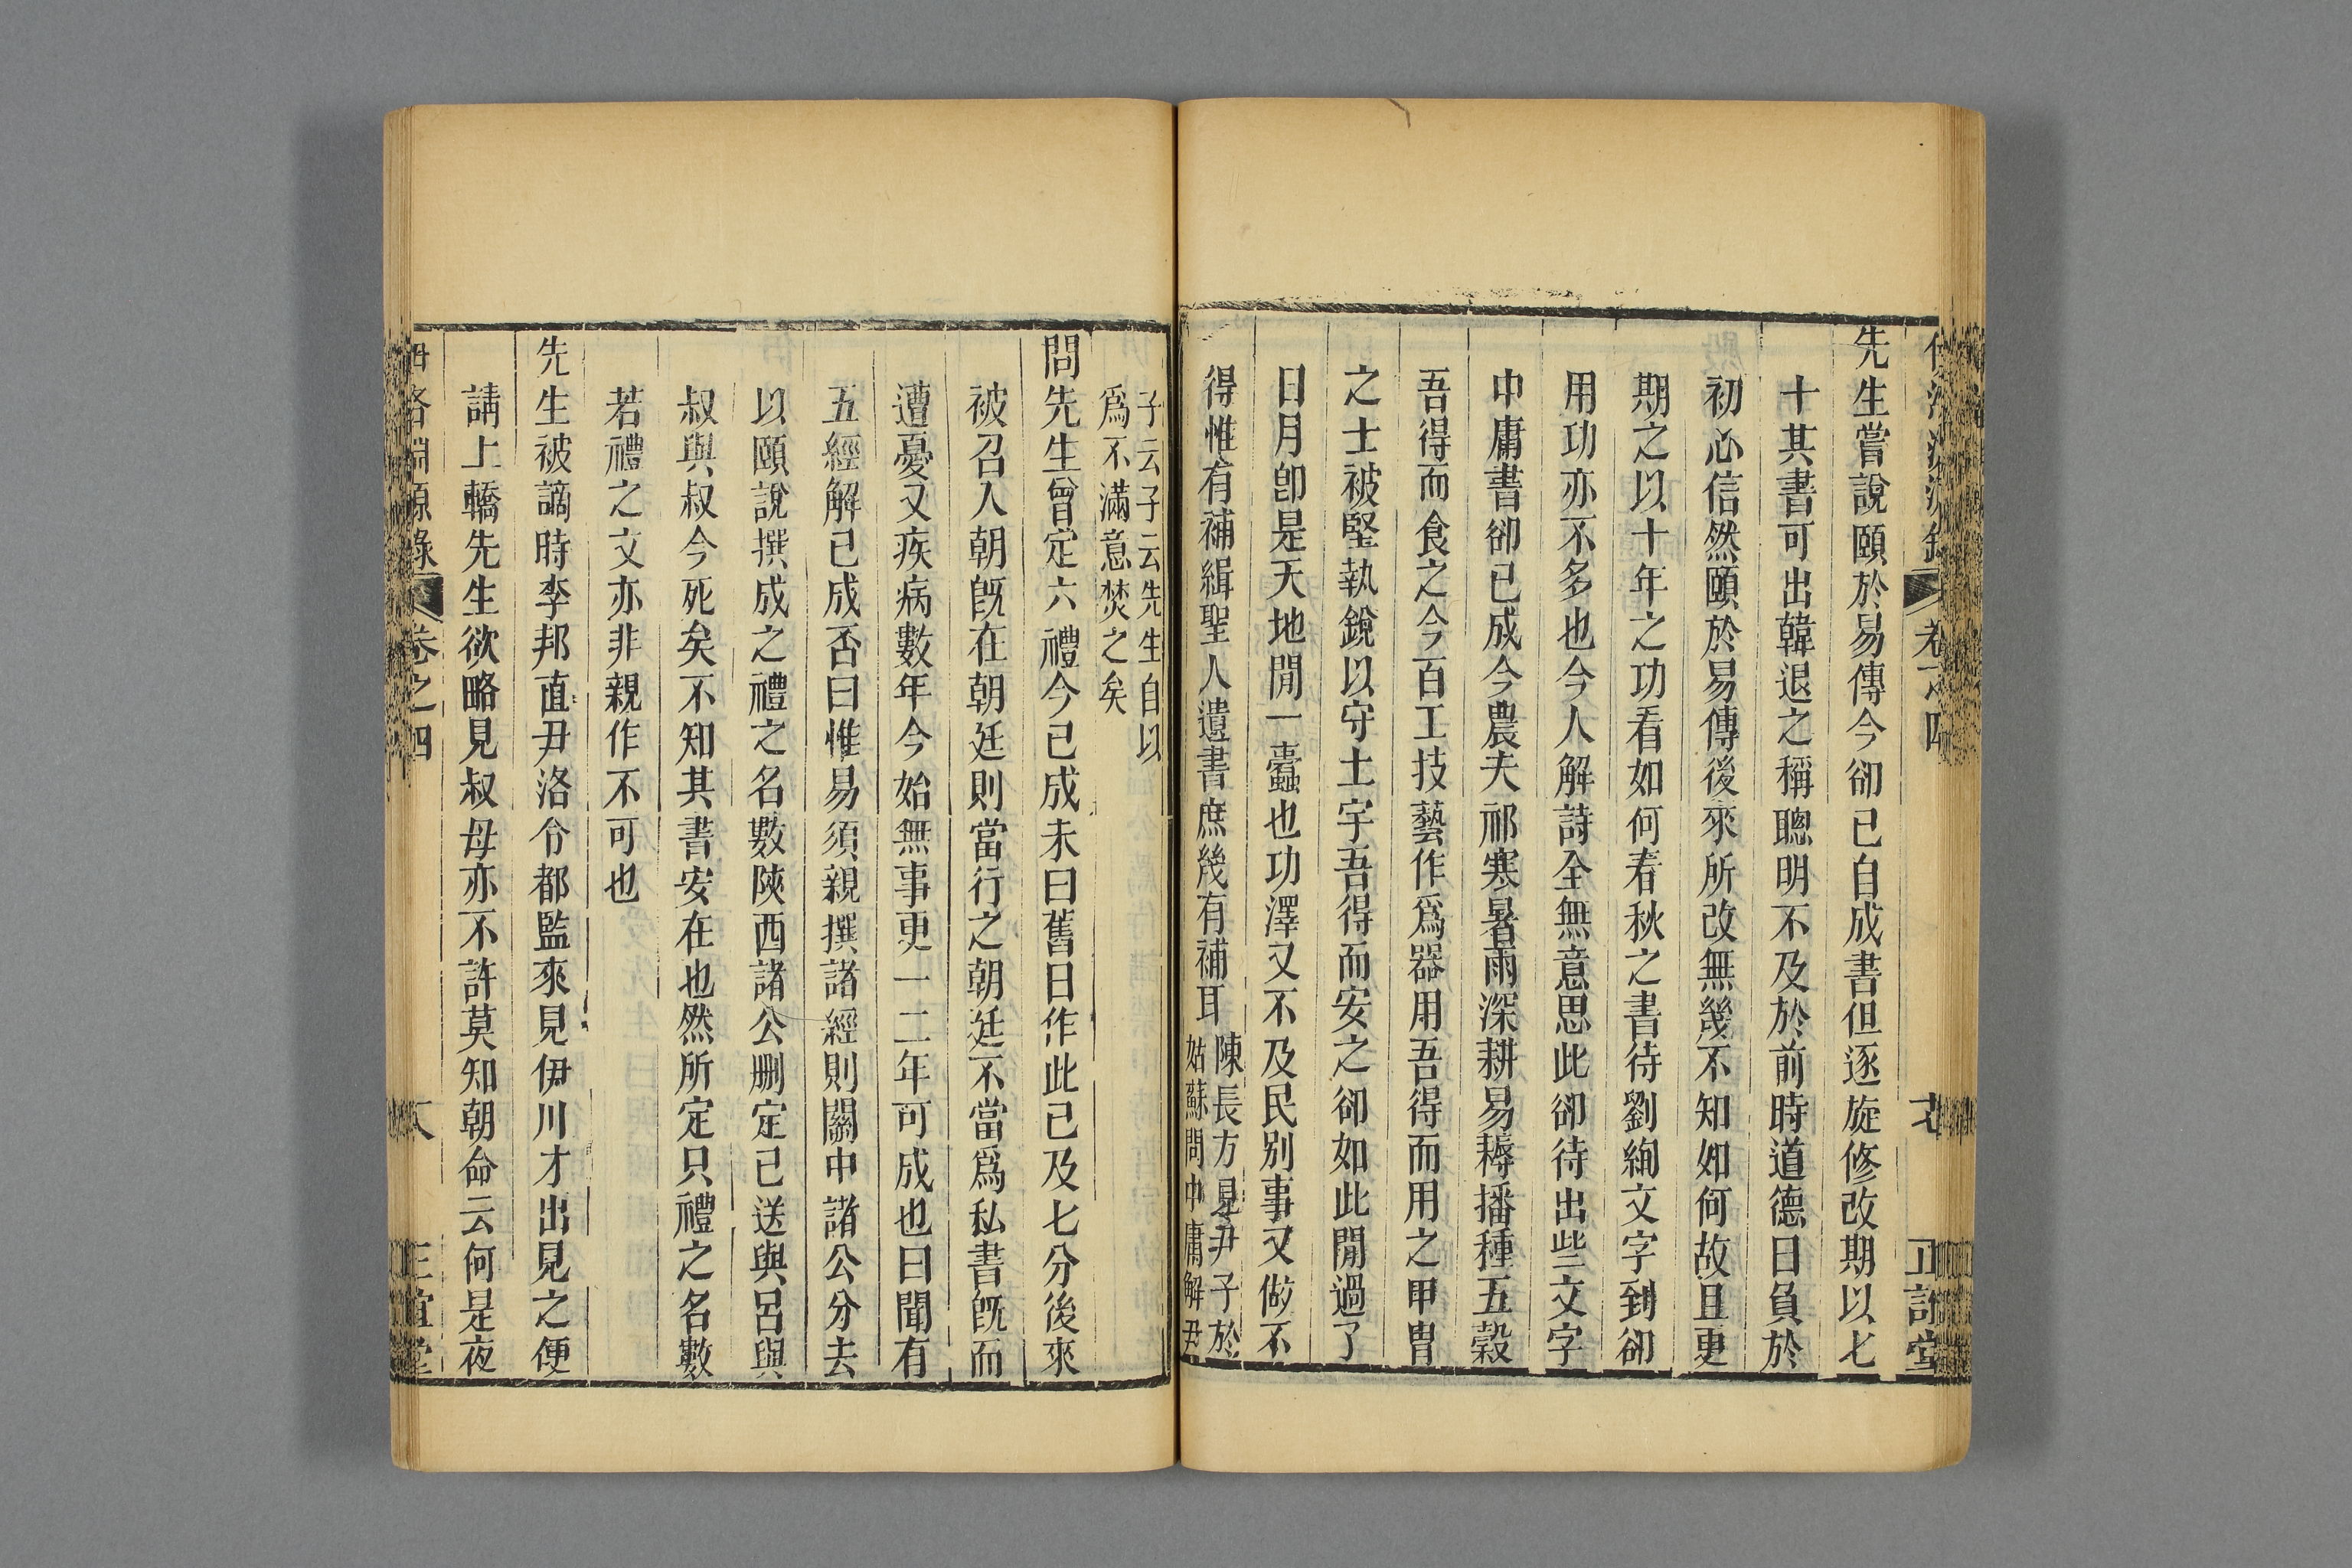 先生嘗說頤於易傳今卻已自成書但逐旋修改期以七
十其書可出韓退之稱聰明不及於前時道德日負於
初心信然頤於易傳後來所改無幾不知如何故且更
期之以十年之功看如何春秋之書待劉絢文字到卻
用功亦不多也今人解詩全無意思此卻待出些文字
中庸書卻已成今農夫祁寒暑雨深耕易耨播種五穀
吾得而食之今百工技藝作爲器用吾得而用之甲冑
之士被堅執銳以守土宇吾得而安之卻如此閒過了
日月卽是天地間一蠹也功澤又不及民別事又做不
得惟有補緝聖人遺書庶幾有補耳
陳長方見尹子於
姑蘇問中庸解尹
子云子云先生自以
爲不滿意焚之矣
問先生曾定六禮今已成未曰舊日作此已及七分後來
被召入朝旣在朝廷則當行之朝廷不當爲私書旣而
遭憂又疾病數年今始無事更一二年可成也曰聞有
五經解已成否曰惟易須親撰諸經則關中諸公分去
以頤說撰成之禮之名數陝西諸公刪定已送與呂與
叔與叔今死矣不知其書安在也然所定只禮之名數
若禮之文亦非親作不可也
先生被謫時李邦直尹洛令都監來見伊川才出見之便
請上轎先生欲略見叔母亦不許莫知朝命云何是夜
伊洛淵源錄
卷之四
正誼堂